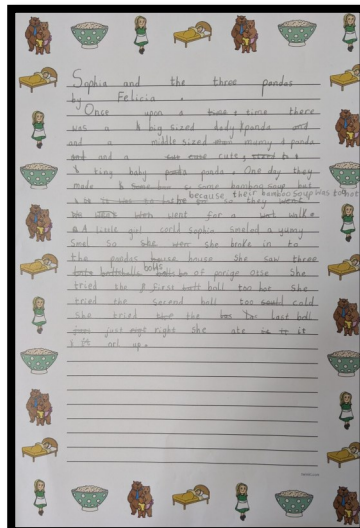 Sophia and the three pandas
by Felicia.
Once upon a time there
was a big sized dady panda
and a middle sized mumy panda
and a cute
tiny baby panda. One day they
made some bamboo soup but
because their bamboo soup was too hot
so they
went for a walk.
A little girl corld Sophia smeled a yumy
Smel So she broke in to
the pandas house She saw three
bolls of porige She
tried the First boll too hot She
tried the second boll too cold
She tried the last boll
just right She ate it
orl up.